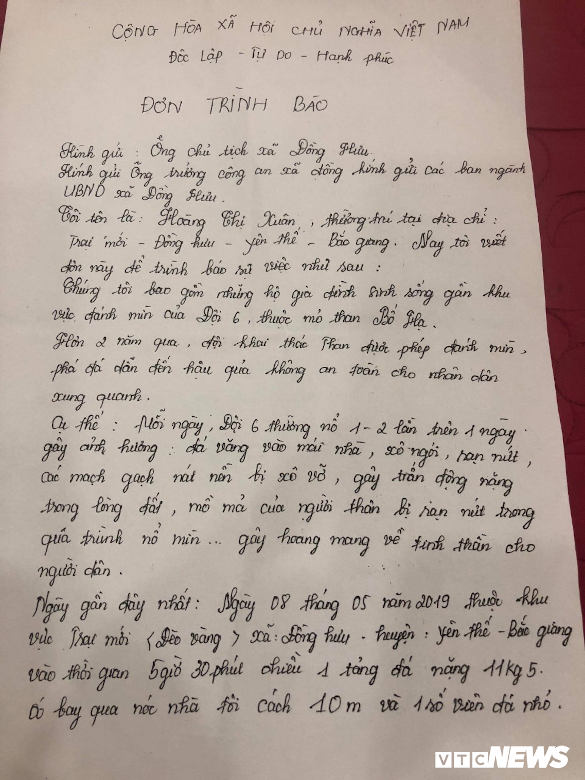 CỘNG HÒA XÃ HỘI CHỦ NGHĨA VIỆT NAM
Độc Lập - Tự Do - Hạnh phúc
ĐƠN TRÌNH BÁO
Kính gửi : Ông chủ tịch xã Đồng Hưu.
Kính gửi Ông trưởng công an xã đồng kính gửi các ban ngành
UBND xã Đồng Hưu.
Tôi tên là : Hoàng Thị Xuân , thường trú tại địa chỉ :
Trại mới - Đồng hưu - yên thế - Bắc giang. Nay tôi viết
đơn này để trình báo sự việc như sau :
Chúng tôi bao gồm những hộ gia đình sinh sống gần khu
vực đánh mìn của Đội 6 , thuộc mỏ than Bố Hạ.
Hơn 2 năm qua , đội khai thác Than được phép đánh mìn ,
phá đá dẫn đến hậu quả không an toàn cho nhân dân
xung quanh.
Cụ thể : Mỗi ngày , Đội 6 thường nổ 1 - 2 lần trên 1 ngày.
gây ảnh hưởng : đá văng vào mái nhà , xô ngói , rạn nứt ,
các mạch gạch nát nền bị xô vỡ , gây trấn động nặng
trong lòng đất , mồ mả của người thân bị rạn nứt trong
quá trình nổ mìn ... gây hoang mang về tinh thần cho
người dân .
Ngày gần đây nhất : Ngày 08 tháng 05 năm 2019 thuộc khu
vực Trại mới < Đèo vàng > xã : Đồng hưu . huyện : yên thế - Bắc giang
vào thời gian 5giờ 30 phút chiều 1 tảng đá nặng 11kg5.
Có bay qua nóc nhà tôi cách 10m và 1 số viên đá nhỏ.
VTC NEWS